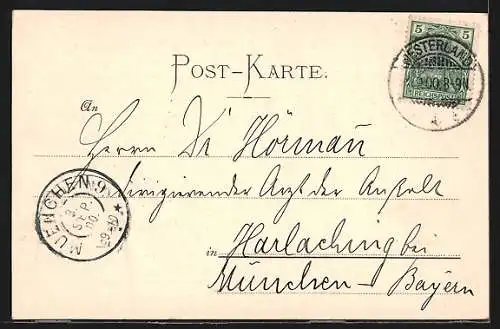 5 5
REICHSPOST
WESTERLAND
.00.8-9N
POST-KARTE.
An
Herrn Dr Hörmann
dirigierender Arzt der Anstalt
in Harlaching bei
München-Bayern
MUENCHEN
2
SEP.
00.